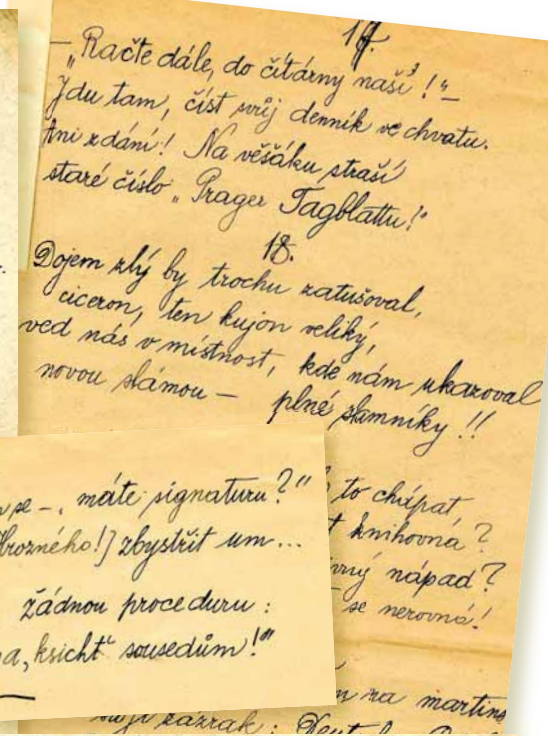 17.
— „Račte dále, do čítárny naší!" —
Jdu tam, číst svůj denník ve chvatu.
Ani zdání! Na věšáku straší
staré číslo „Prager Tagblattu!"
18.
Dojem zlý by trochu zatušoval,
ciceron, ten kujon veliký,
ved nás v místnost, kde nám ukazoval
novou slámou — plné slamníky!!
to chápat
knihovna?
nápad?
se nerovná!
na martins
zázrak:
se –, máte signaturu?"
Hrozného!] zbystřit um...
žádnou proceduru:
a „ksicht" sousedům!"